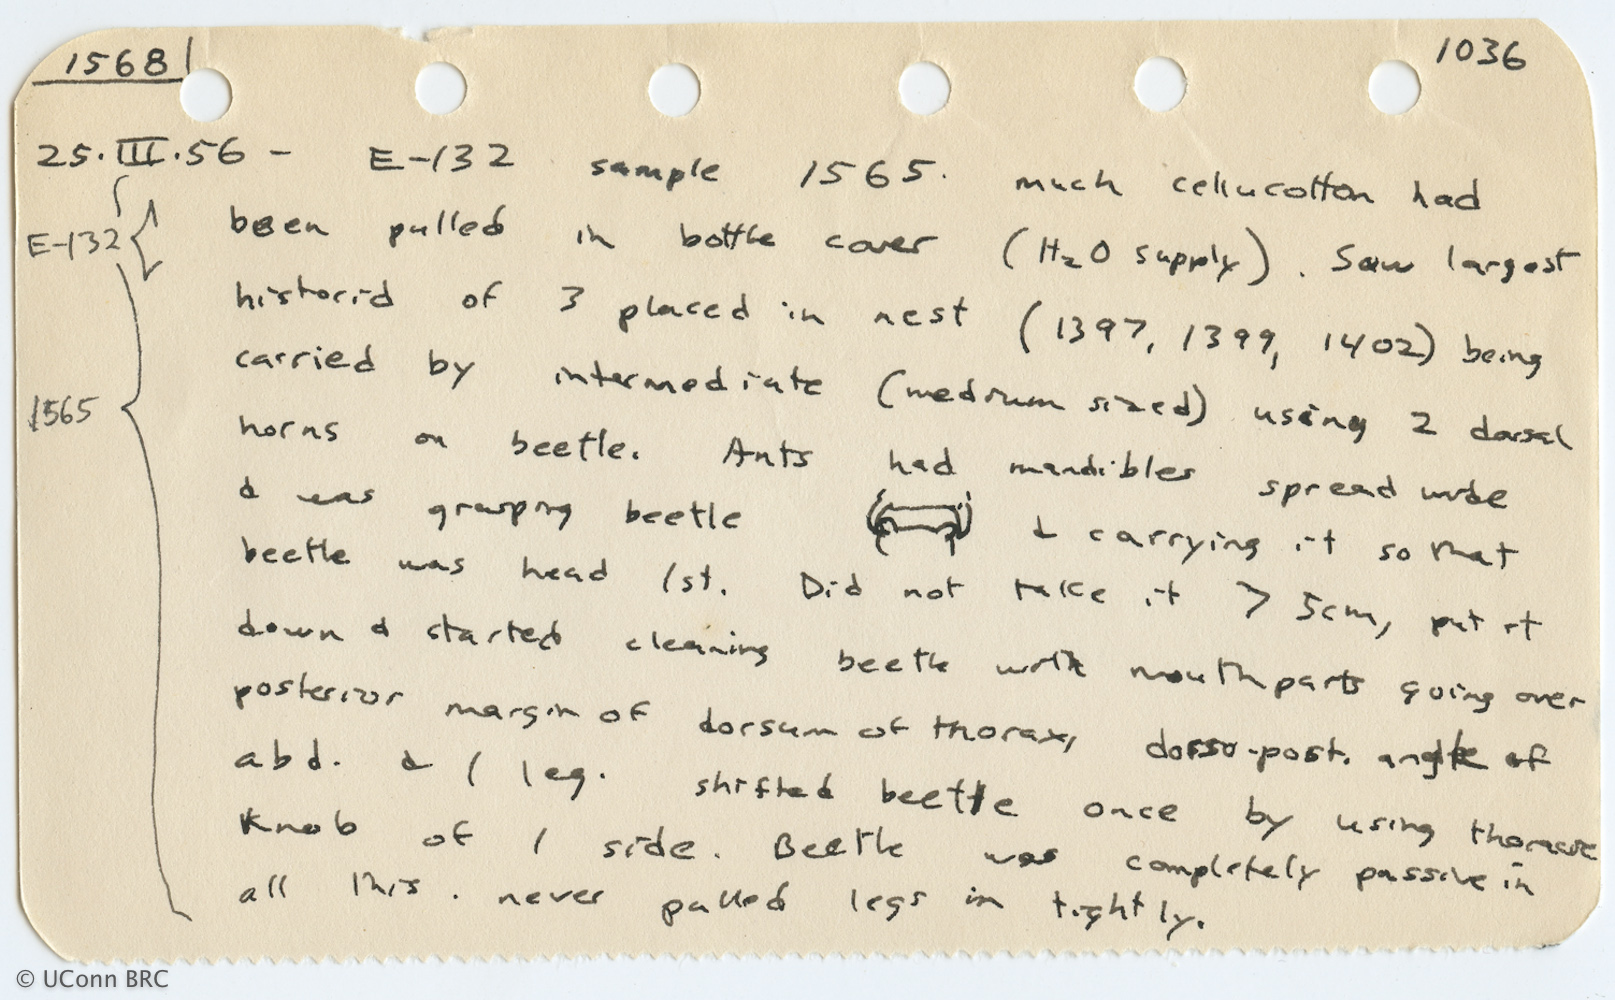 1568
1036
25.III.56 - E-132 sample 1565. much cellucotton had
E-132 been pulled in bottle cover (H2O supply). Saw largest
historid of 3 placed in nest (1397, 1399, 1402) being
carried by intermediate (medium sized) using 2 dorsal
1565
horns on beetle. Ants had mandibles spread wide
& was grasping beetle & carrying it so that
beetle was head 1st. Did not take it > 5cm, put it
down & started cleaning beetle with mouthparts going over
posterior margin of dorsum of thorax, dorso-post. angle of
abd. & 1 leg. shifted beetle once by using thoracic
knob of 1 side. Beetle was completely passive in
all this. never pulled legs in tightly.
© UConn BRC